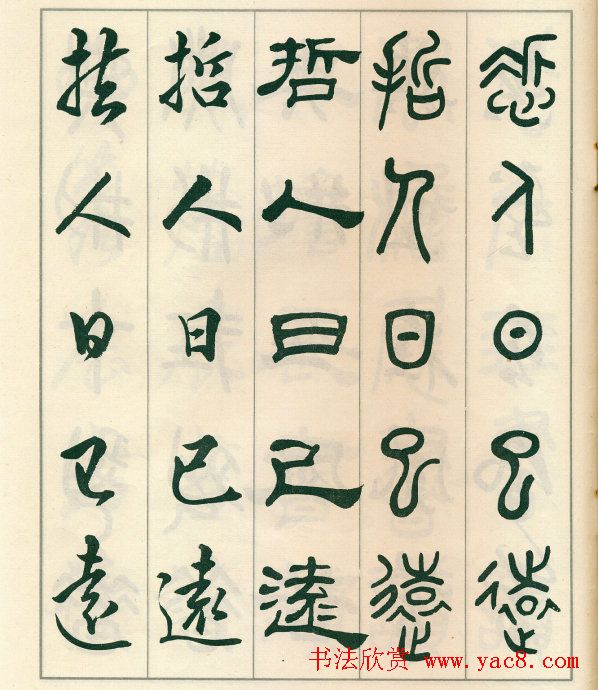 悊人日已遠
哲人日已遠
哲人日已遠
哲人日已遠
哲人日已遠
书法欣赏 www.yac8.com